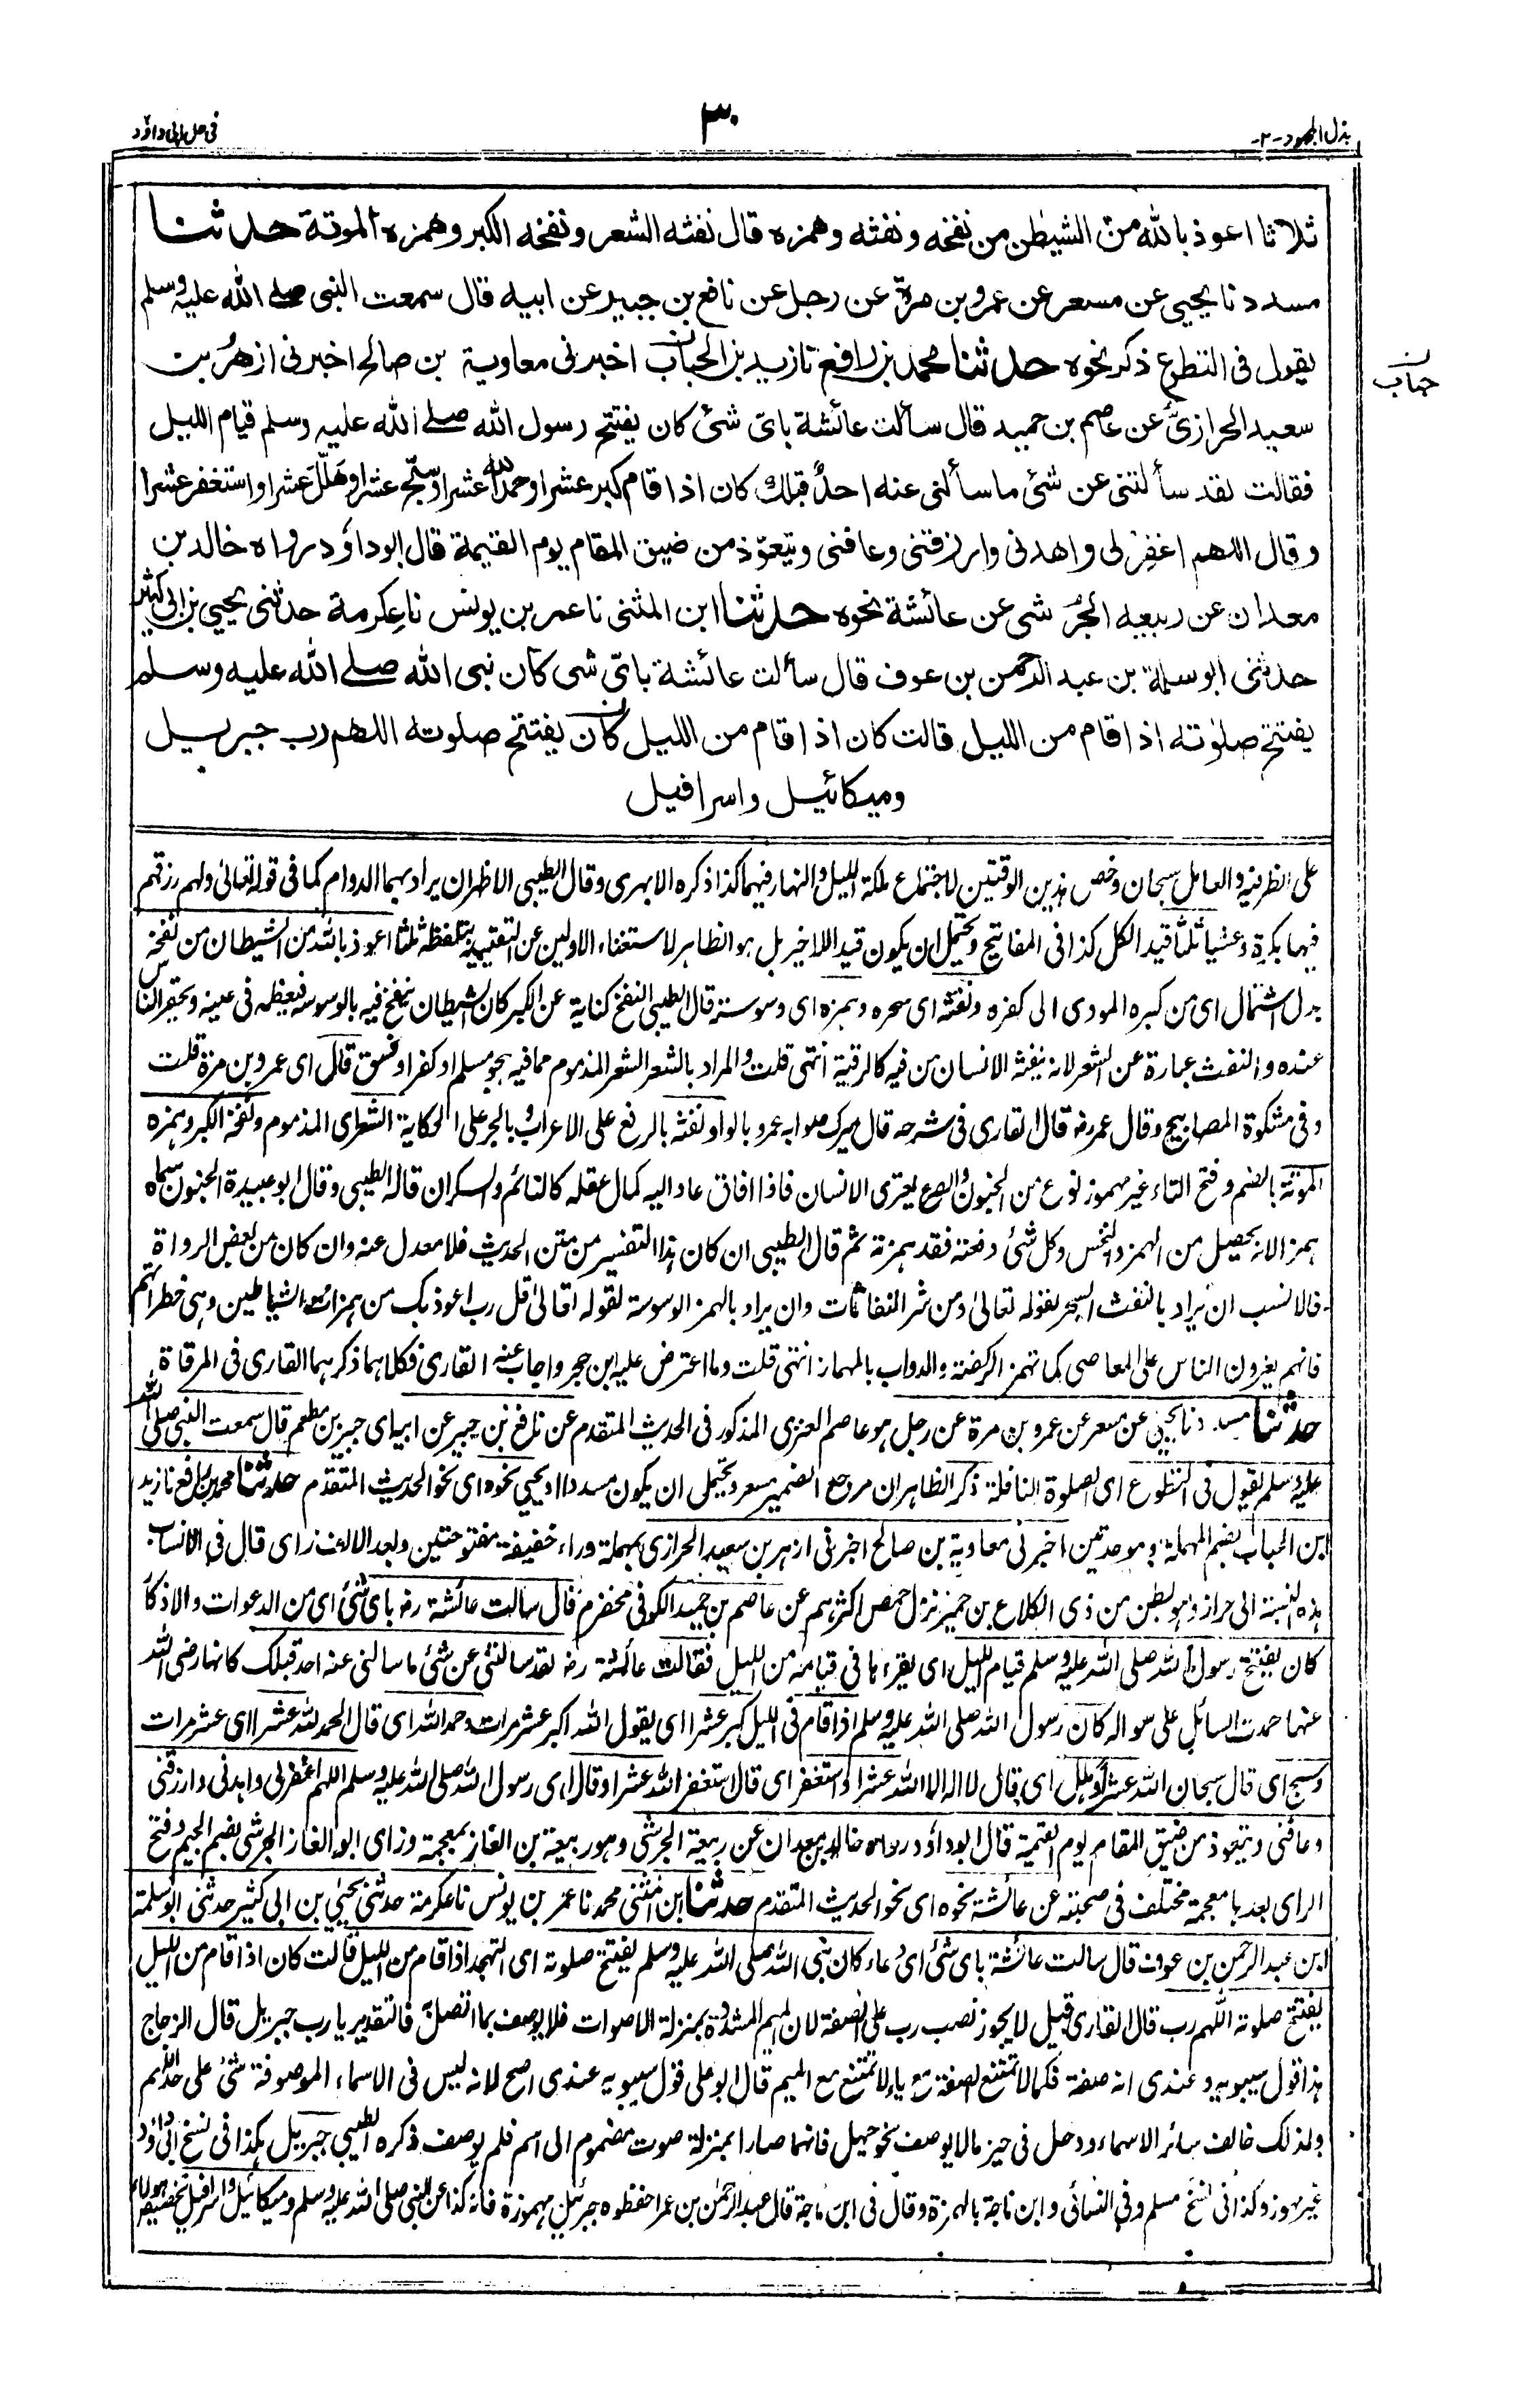 بذل المجهود - ٢-
٣٠
فى حل ابى داؤد
ثلاثا اعوذ بالله من الشيطٰن من نفخه ونفثه وهمزه قال نفثه الشعر ونفخه الكبر وهمزه الموتة حدثنا
مسدد نا يحيى عن مسعر عن عمرو بن مرة عن رجل عن نافع بن جبير عن ابيه قال سمعت النبى صلى الله عليه وسلم
يقول فى التطوع ذكر نحوه حدثنا محمد بن رافع نا زيد بن الحباب اخبرنى معاوية بن صالح اخبرنى ازهر بن
حباب
سعيد الحرازىّ عن عاصم بن حميد قال سألت عائشة باىّ شئ كان يفتتح رسول الله صلى الله عليه وسلم قيام الليل
فقالت لقد سألتنى عن شئ ما سألنى عنه احدٌ قبلك كان اذا قام كبر عشرا وحمد الله عشرا وسبّح عشرا وهَلّلَ عشرا واستغفر عشرا
وقال اللهم اغفرلى واهدنى وارزقنى وعافنى ويتعوّذ من ضيق المقام يوم القيٰمة قال ابوداوَد رواه خالد بن
معدان عن ربيعه الجُرَشى عن عائشة نحوه حدثنا ابن المثنى نا عمر بن يونس نا عكرمة حدثنى يحيى بن ابى كثير
حدثنى ابو سلمة بن عبد الرحمن بن عوف قال سألت عائشة باىّ شى كان نبى الله صلى الله عليه وسلم
يفتتح صلوٰته اذا قام من الليل قالت كان اذا قام من الليل كان يفتتح صلوته اللهم رب جبريل
وميكائيل واسرافيل
على الظرفية والعامل سبحان وخص هذين الوقتين لاجتماع ملكة الليل والنهار فيهما كذا ذكره الابهرى وقال الطيبى الاظهر ان يراد بهما الدوام كما فى قوله تعالى ولهم رزقهم
فيها بكرة وعشيا ثلثا قيد الكل كذا فى المفاتيح ويحتمل ان يكون قيد اللاخير بل هو الظاهر لاستغناء الاولين عن التقييد بتلفظه ثلثا اعوذ بالله من الشيطان من نفخه
بدل اشتمال اى من كبره المودى الى كفره ونفثه اى سحره وهمزه اى وسوسته قال الطيبى النفخ كناية عن الكبر كان الشيطان ينفخ فيه بالوسوسة فيعظمه فى عينه ويحقر الناس
عنده والنفث عبارة عن الشعر لانه ينفثه الانسان من فيه كالرقية انتهى قلت والمراد بالشعر الشعر المذموم مما فيه هجو مسلم او كفر او فسق قال اى عمرو بن مرة قلت
وفى مشكوة المصابيح وقال عمر رض قال القارى فى شرحه قال ميرك صوابه عمرو بالواو ونفثه بالرفع على الاعراب وبالجر على الحكاية الشعر اى المذموم ونفخه الكبر وهمزه
الموتة بالضم وفتح التاء غير مهموز نوع من الجنون والصرع يعترى الانسان فاذا افاق عاد اليه كمال عقله كالنائم والسكران قاله الطيبى وقال ابو عبيدة الجنون سماه
همزا لانه يحصيل من الهمز والنخس وكل شئ دفعته فقد همزته ثم قال الطيبى ان كان هذا التفسير من متن الحديث فلا معدل عنه وان كان من بعض الرواة
فالانسب ان يراد بالنفث السحر لقوله تعالىٰ ومن شر النفاثات وان يراد بالهمز الوسوسة لقوله تعالىٰ قل رب اعوذ بك من همزات الشياطين وهى خطراتهم
فانهم يغرون الناس على المعاصى كما تهمز الركضة والدواب بالمهماز انتهى قلت وما اعترض عليه ابن حجر واجاب عنه القارى فكلاهما ذكرهما القارى فى المرقاة
حدثنا مسدد نا يحيى عن مسعر عن عمرو بن مرة عن رجل هو عاصم العنزى المذكور فى الحديث المتقدم عن نافع بن جبير عن ابيه اى جبير بن مطعم قال سمعت النبى صلى الله
عليه وسلم يقول فى التطوع اى الصلوة النافلة ذكر الظاهر ان مرجع الضمير مسعر ويحتمل ان يكون مسددا او يحيى نحوه اى نحو الحديث المتقدم حدثنا محمد بن رافع نا زيد
ابن الحباب بضم المهملة وموحدتين اخبرنى معاوية بن صالح اخبرنى ازهر بن سعيد الحرازى بمهملة وراء خفيفة مفتوحتين وبعد الالف زاى قال فى الانساب
هذه النسبة الى حراز وهو بطن من ذى الكلاع بن حمير نزل حمص اكثرهم عن عاصم بن حميد الكوفى مخضرم قال سالت عائشة رض باى شئ اى من الدعوات والاذكار
كان يفتتح رسول الله صلى الله عليه وسلم قيام الليل اى يقرء بها فى قيامه من الليل فقالت عائشة رض لقد سالتنى عن شئ ما سالنى عنه احد قبلك كانها رضى الله
عنها حمدت السائل على سواله كان رسول الله صلى الله عليه وسلم اذا قام فى الليل كبر عشرا اى يقول الله اكبر عشر مرات وحمد الله اى قال الحمد لله عشرا اى عشر مرات
وسبح اى قال سبحان الله عشرا وهلل اى قال لا اله الا الله عشرا واستغفر اى قال استغفر الله عشرا وقال اى رسول الله صلى الله عليه وسلم اللهم اغفرلى واهدنى وارزقنى
وعافنى ويتعوذ من ضيق المقام يوم القيمة قال ابوداؤد رواه خالد بن معدان عن ربيعة الجرشى وهو ربيعة بن الغاز بمعجمة وزاى ابو الغاز الجرشى بضم الجيم وفتح
الراى بعدها معجمة مختلف فى صحبته عن عائشة نحوه اى نحو الحديث المتقدم حدثنا ابن المثنى محمد نا عمر بن يونس نا عكرمة حدثنى يحيىٰ بن ابى كثير حدثنى ابو سلمة
ابن عبد الرحمن بن عوف قال سالت عائشة باى شئ اى دعاء كان نبى الله صلى الله عليه وسلم يفتتح صلوته اى التهجد اذا قام من الليل قالت كان اذا قام من الليل
يفتتح صلوته اللهم رب قال القارى قيل لا يجوز نصب رب على الصفة لان الميم المشددة بمنزلة الاصوات فلا يوصف بما اتصل فالتقدير يا رب جبريل قال الزجاج
هذا قول سيبويه وعندى انه صفة فكما لا تمتنع الصفة مع ياء لا تمتنع مع الميم قال ابو على قول سيبويه عندى اصح لانه ليس فى الاسماء الموصوفة شئ على حد اللهم
ولذلك خالف سائر الاسماء ودخل فى حيز ما لا يوصف نحو حيهل فانهما صارا بمنزلة صوت مضموم الى اسم فلم يوصف ذكره الطيبى جبريل هكذا فى نسخ ابى داؤد
غير مهموز وكذا فى نسخ مسلم وفى النسائى وابن ماجة بالهمزة وقال فى ابن ماجة قال عبد الرحمٰن بن عمر احفظوه جبرئيل مهموزة فانه كذا عن النبى صلى الله عليه وسلم وميكائيل واسرافيل تخصيص هؤلاء